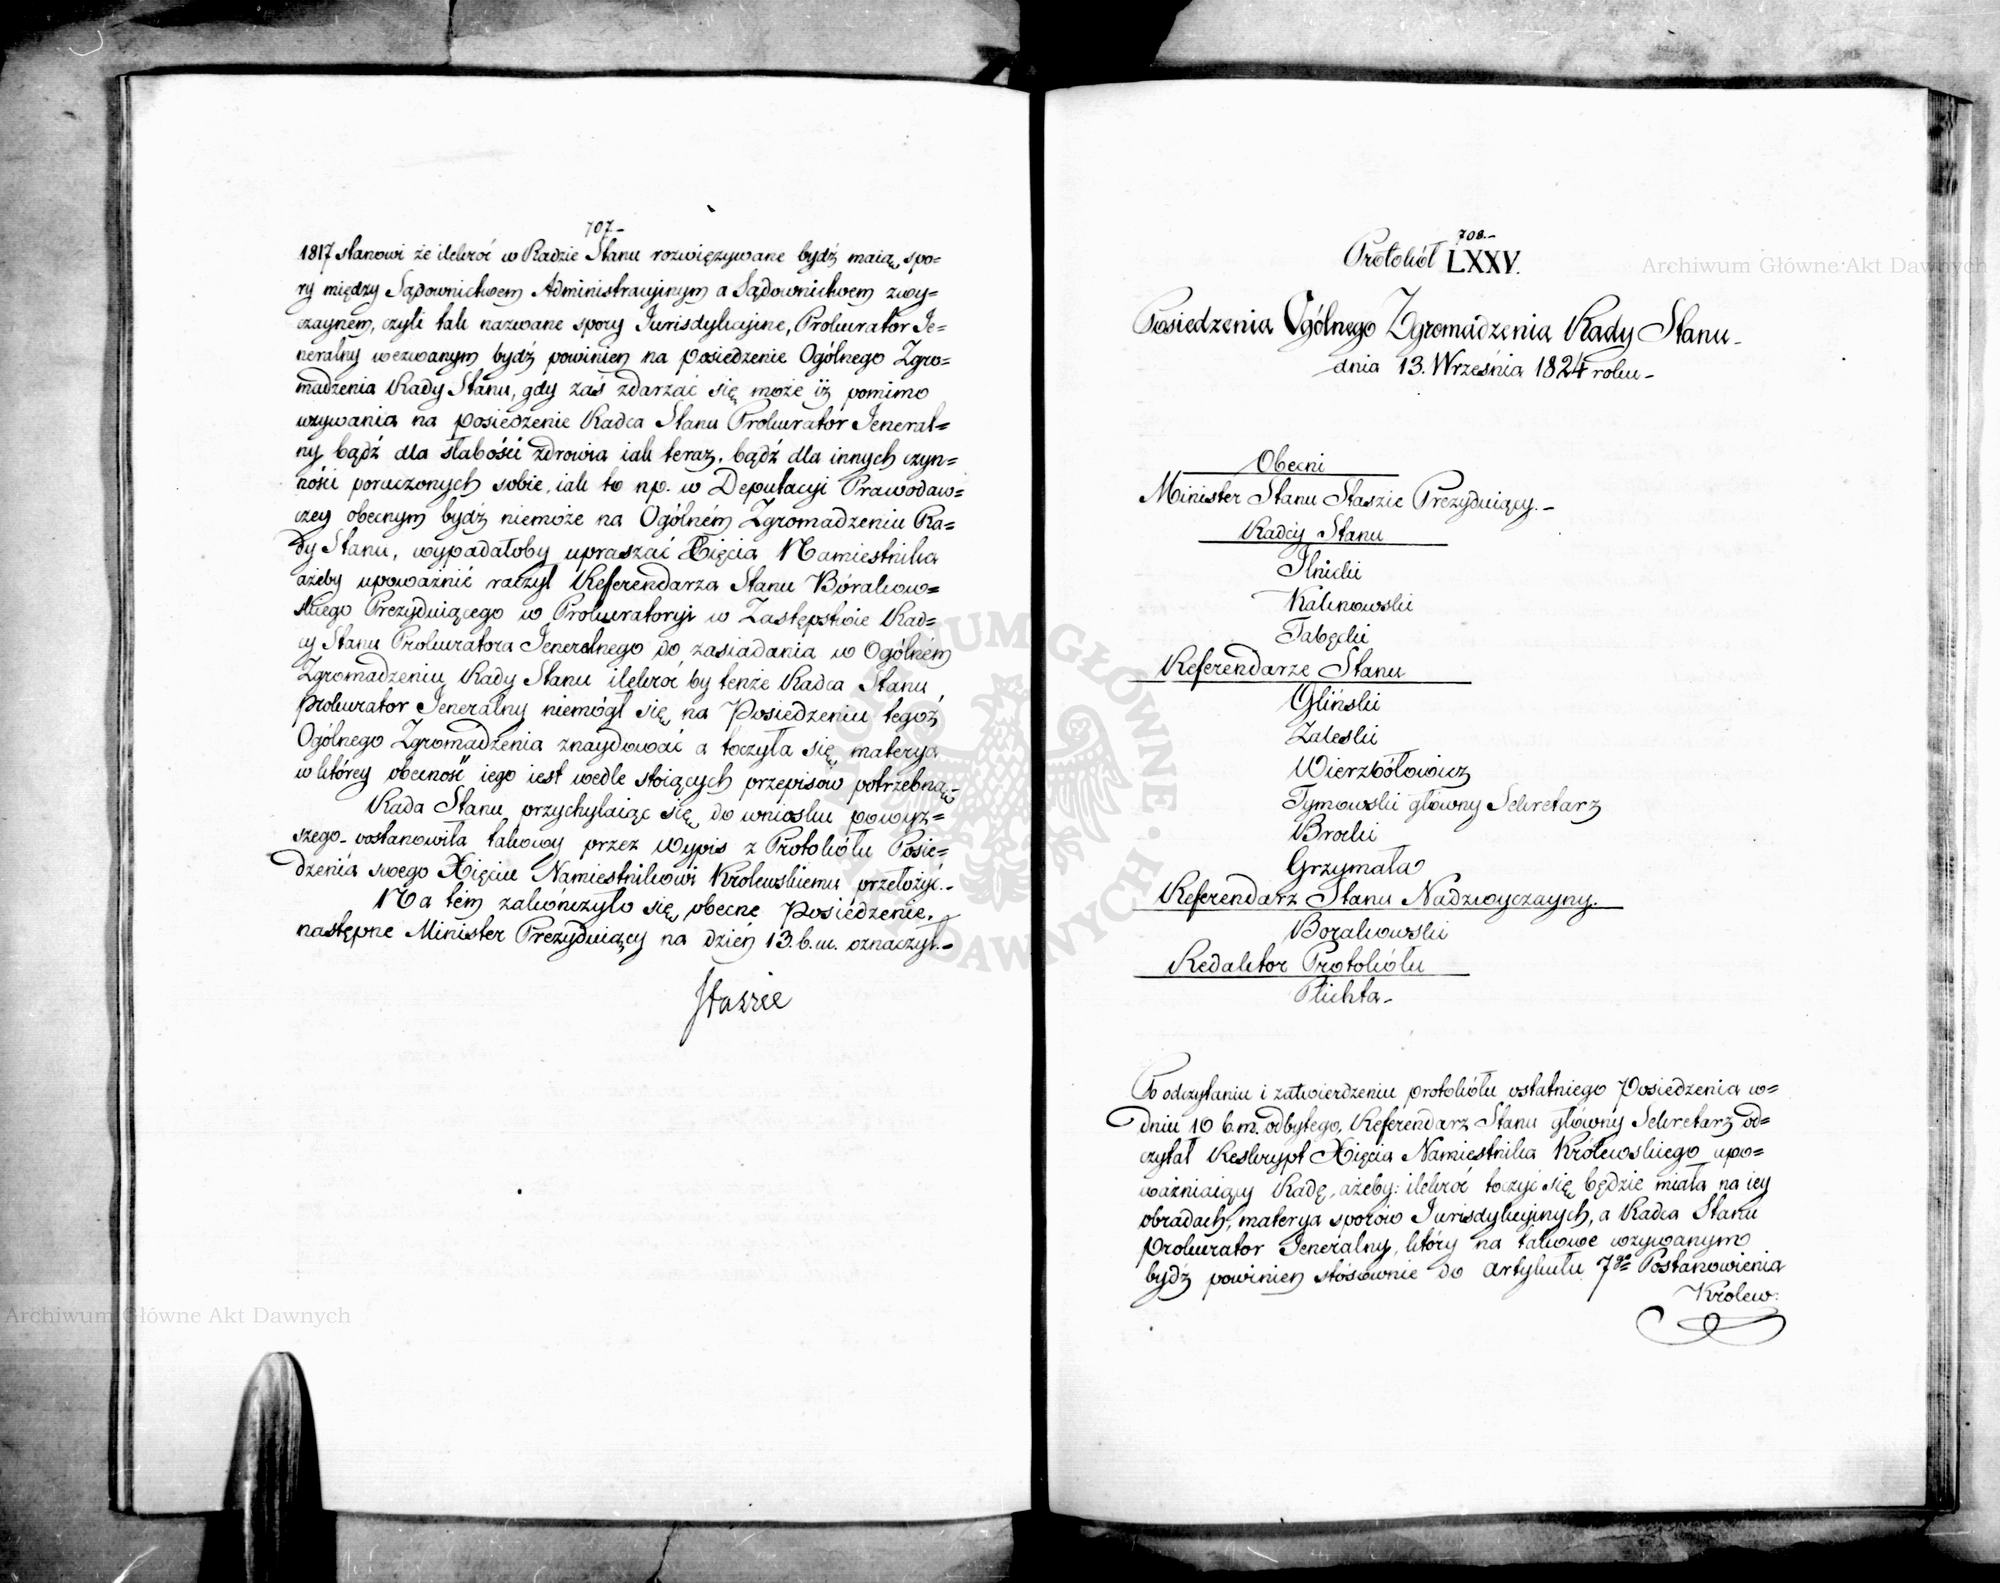 707.-
1817 stanowi że ilekroć w Radzie Stanu rozwięzywane bydź maią spo=
ry między Sądownictwem Administracyinym a Sądownictwem zwy=
czaynem, czyli tak nazwane spory Jurisdykcyine, Prokurator Je=
neralny wezwanym bydź powinien na posiedzenie Ogólnego Zgro=
madzenia Rady Stanu, gdy zaś zdarzać się może iż pomimo
wzywania na posiedzenie Radca Stanu Prokurator Jeneral=
ny bądź dla słabości zdrowia iak teraz, bądź dla innych czyn=
ności poruczonych sobie, iak to np. w Deputacyi Prawodaw=
czey obecnym bydź niemoże na Ogólném Zgromadzeniu Ra=
dy Stanu, wypadałoby upraszać Xięcia Namiestnika
ażeby upoważnić raczył Referendarza Stanu Bórakow=
skiego Prezyduiącego w Prokuratoryi w Zastępstwie Rad=
cy Stanu Prokuratora Jeneralnego do zasiadania w Ogólném
Zgromadzeniu Rady Stanu ilekroć by tenże Radca Stanu
Prokurator Jeneralny niemógł się na Posiedzeniu tegoż
Ogólnego Zgromadzenia znaydować a toczyła się materya
w którey obecność iego iest wedle stoiących przepisów potrzebną.-
Rada Stanu przychylaiąc się do wniosku powyż=
szego postanowiła takowy przez Wypis z Protokółu Posie=
dzenia swego Xięciu Namiestnikowi Królewskiemu przełożyć.-
Na tém zakończyło się obecne Posiedzenie,
następne Minister Prezyduiący na dzień 13. b. m. oznaczył.-
Staszic
708.-
Protokół LXXV.
Posiedzenia Ogólnego Zgromadzenia Rady Stanu
dnia 13. Września 1824 roku
Obecni
Minister Stanu Staszic Prezyduiący.-
Radcy Stanu
Ilnicki
Kalinowski
Tabęcki
Referendarze Stanu
Gliński
Zaleski
Wierzbółowicz
Tymowski główny Sekretarz
Brocki
Grzymała
Referendarz Stanu Nadzwyczayny.
Borakowski
Redaktor Protokółu
Plichta
Po odczytaniu i zatwierdzeniu protokółu ostatniego Posiedzenia w=
dniu 10 b. m. odbytego, Referendarz Stanu główny Sekretarz od=
czytał Reskrypt Xięcia Namiestnika Królewskiego upo=
ważniaiący Radę, ażeby: ilekroć toczyć się będzie miała na iey
obradach, materya sporów Jurisdykcyinych, a Radca Stanu
Prokurator Jeneralny, który na takowe wzywanym
bydź powinien stósownie do artykułu 7go Postanowienia
Królew:
Archiwum Główne Akt Dawnych
Archiwum Główne Akt Dawnych
ARCHIWUM GŁÓWNE AKT DAWNYCH